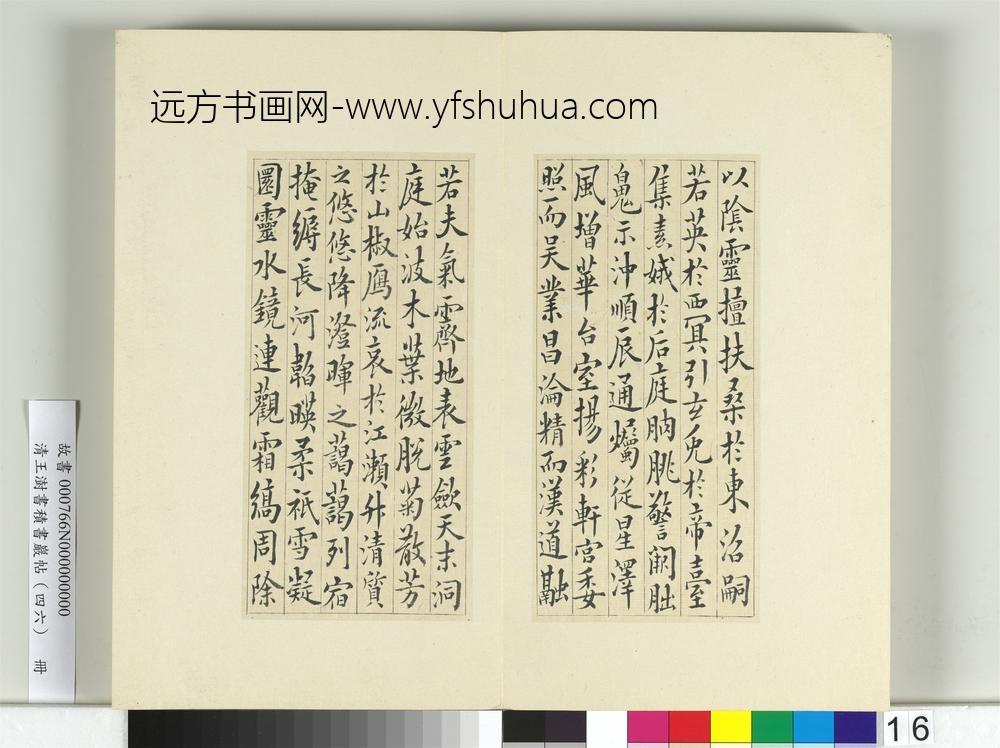 远方书画网-www.yfshuhua.com
以陰靈擅扶桑於東沼嗣
若英於西冥引玄兔於帝臺
集素娥於后庭朒朓警闕朏
魄示沖順辰通爥從星澤
風增華台室揚彩軒宮委
照而吳業昌淪精而漢道融
若夫氣霽地表雲歛天末洞
庭始波木葉微脫菊散芳
於山椒鴈流哀於江瀨升清質
之悠悠降澄暉之藹藹列宿
掩縟長河韜暎柔祇雪凝
圓靈水鏡連觀霜縞周除
故書 000766N000000000
清王澍書積書巖帖(四六) 冊
16